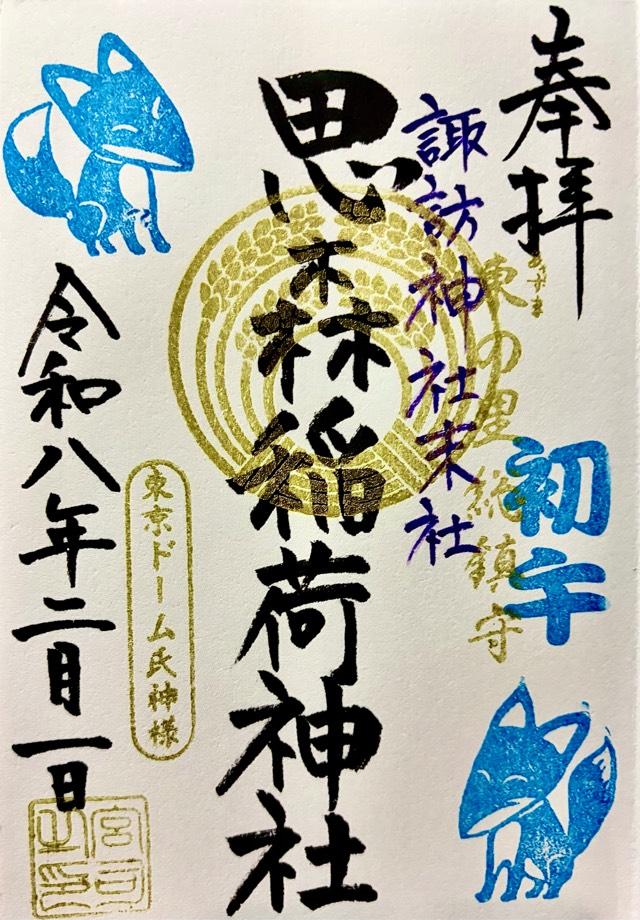 奉拝
初午
あずま
東の里 総鎮守
諏訪神社末社
思森稲荷神社
東京ドーム氏神様
令和八年二月一日
宮司之印